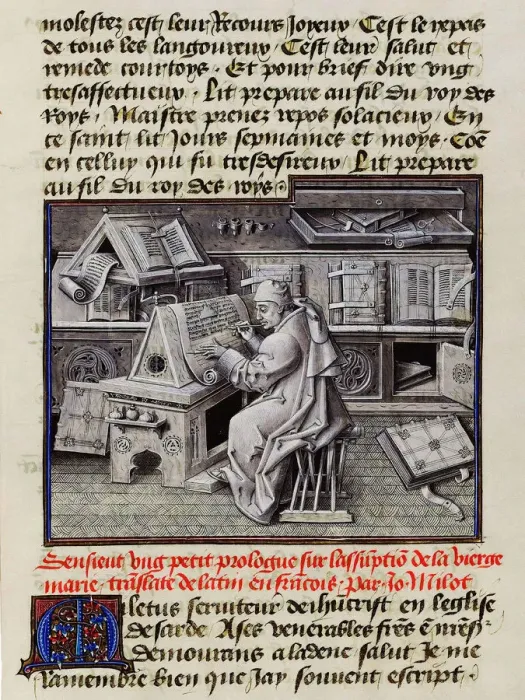 molestez cest leur Recours Joyeux / Cest le repos
de tous les langoureux / Cest leur salut et
remede courtoys · Et pour brief dire vng
tresaffectueux · Lit prepare au fil du roy des
Roys / Maistre prenez repos solacieux / En
ce saint lit Jours sepmaines et moys · Coe
en celluy qui fu tresdesireux / Lit prepare
au fil du roy des roys ·
Sensieut vng petit prologue sur lassuptio de la vierge
marie, traslate de latin en francois · Par Jo · Milot
Miletus seruiteur de ihucrist en leglise
de sarde A ses venerables freres
demourans a ladece salut Je me
ramembre bien que Jay souuent escript ·